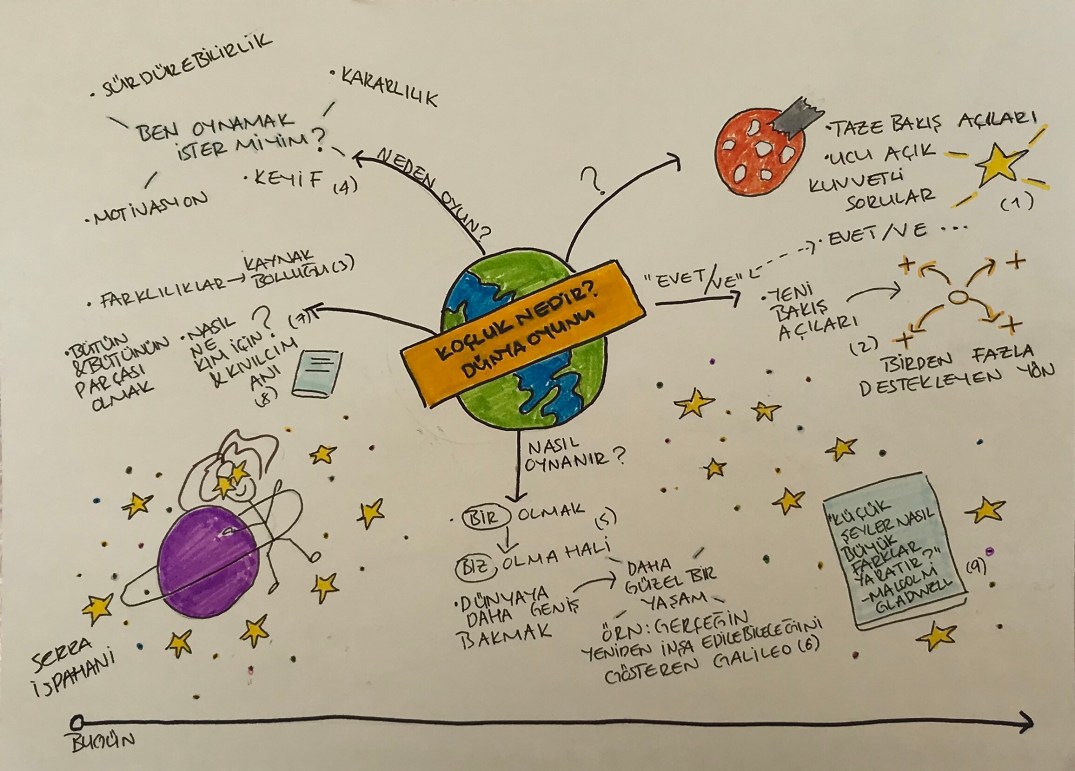 • SÜRDÜREBİLİRLİK
• KARARLILIK
BEN OYNAMAK
İSTER MİYİM?
• KEYİF (4)
• MOTİVASYON
NEDEN OYUN?
?
• TAZE BAKIŞ AÇILARI
• UCU AÇIK
KUVVETLİ
SORULAR
(1)
"EVET/VE"
• EVET/VE ...
• YENİ
BAKIŞ
AÇILARI
(2)
BİRDEN FAZLA
DESTEKLEYEN YÖN
KOÇLUK NEDİR?
DÜNYA OYUNU
• FARKLILIKLAR → KAYNAK
BOLLUĞU (3)
(7)
• BÜTÜN
& BÜTÜNÜN
PARÇASI
OLMAK
• NASIL
NE
KİM İÇİN?
& KIVILCIM
ANI
(8)
NASIL
OYNANIR?
• BİR OLMAK
(5)
BİZ OLMA HALİ
• DÜNYAYA
DAHA GENİŞ
BAKMAK
DAHA
GÜZEL BİR
YAŞAM
ÖRN: GERÇEĞİN
YENİDEN İNŞA EDİLEBİLECEĞİNİ
GÖSTEREN GALİLEO (6)
"KÜÇÜK
ŞEYLER NASIL
BÜYÜK
FARKLAR
YARATIR?"
- MALCOLM
GLADWELL
(9)
SERRA
İSPAHANİ
BUGÜN